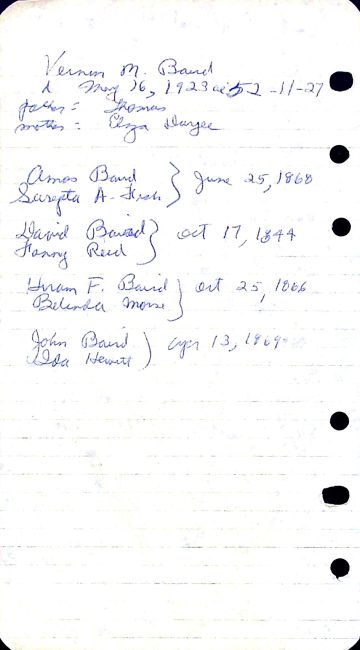 Vernon M. Baird
d May 16, 1923 ae 52-11-27
father = Thomas
mother = Eliza Duryee
Amos Baird } June 25, 1868
Sarepta A.
David Baird } Oct 17, 1844
Fanny Reed
Hiram F. Baird } Oct 25, 1866
Belinda Morse
John Baird ) apr 13, 1869
Ida Hewitt